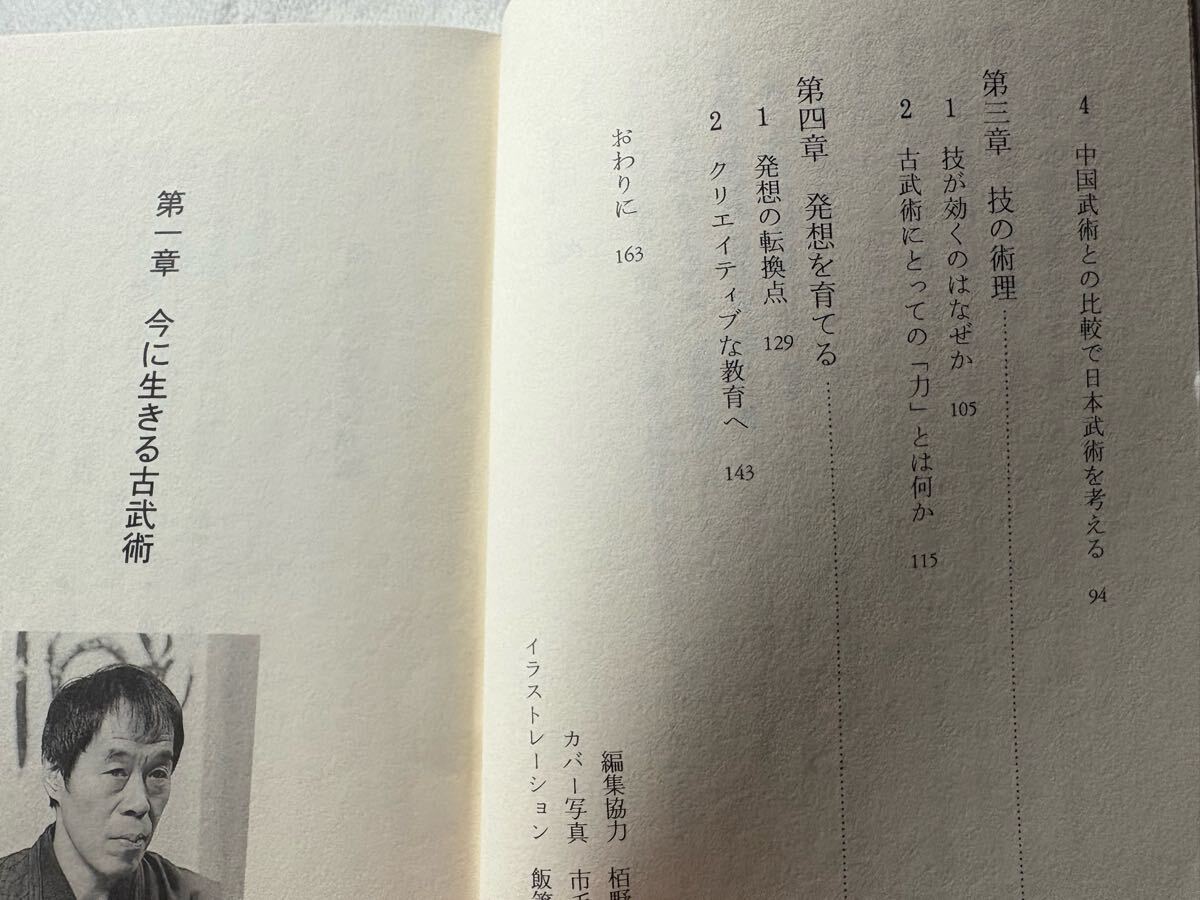 4 中国武術との比較で日本武術を考える 94
第三章 技の術理
1 技が効くのはなぜか 105
2 古武術にとっての「力」とは何か 115
第四章 発想を育てる
1 発想の転換点 129
2 クリエイティブな教育へ 143
おわりに 163
編集協力 栢野
カバー写真 市
イラストレーション 飯
第一章 今に生きる古武術